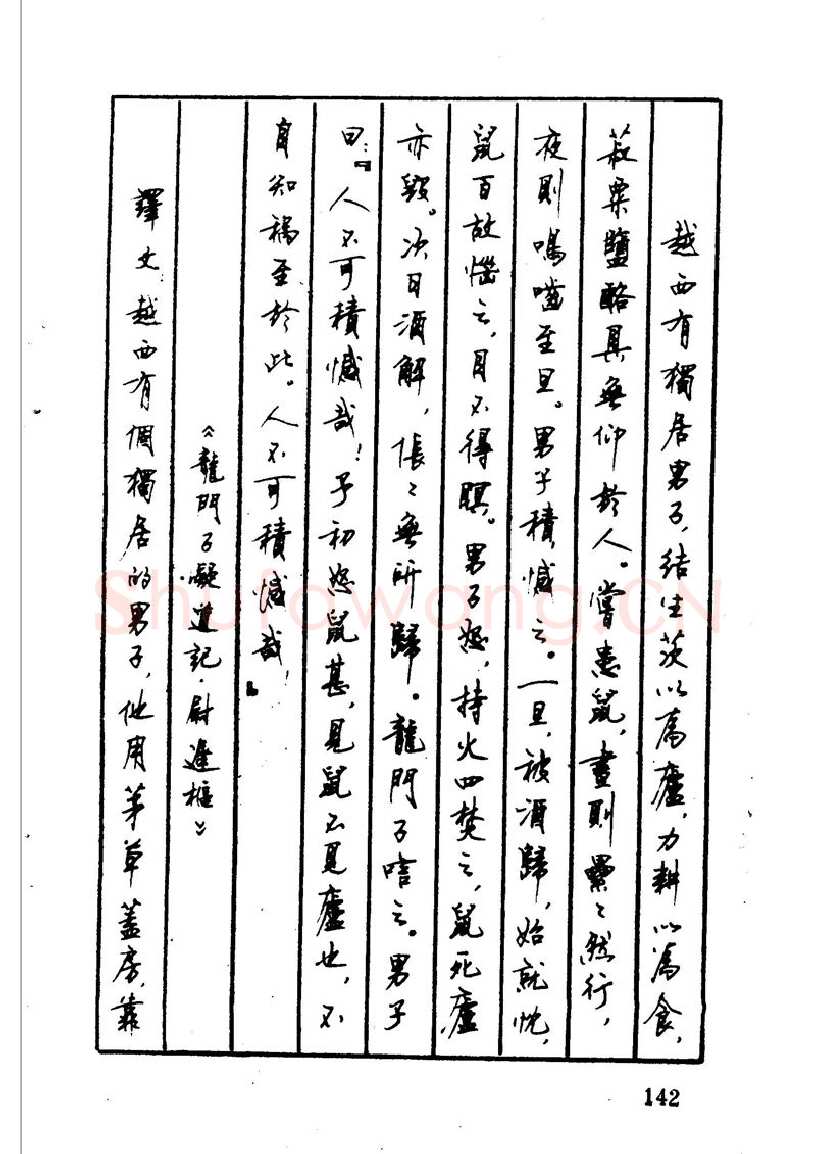 越西有獨居男子,結生茨以爲廬,力耕以爲食,
菽粟鹽酪具無仰於人。嘗患鼠,晝則纍纍然行,
夜則鳴嚙至旦。男子積憾之。一旦,被酒歸,始就枕,
鼠百故惱之,目不得瞑。男子怒,持火四焚之,鼠死廬
亦毀。次日酒解,倀倀無所歸。龍門子唁之。男子
曰:『人不可積憾哉!予初怒鼠甚,見鼠不見廬也,不
自知禍至於此。人不可積憾哉!』
《龍門子凝道記·尉遲樞》
譯文:越西有個獨居的男子,他用茅草蓋房,靠
142
Shufawang.CN